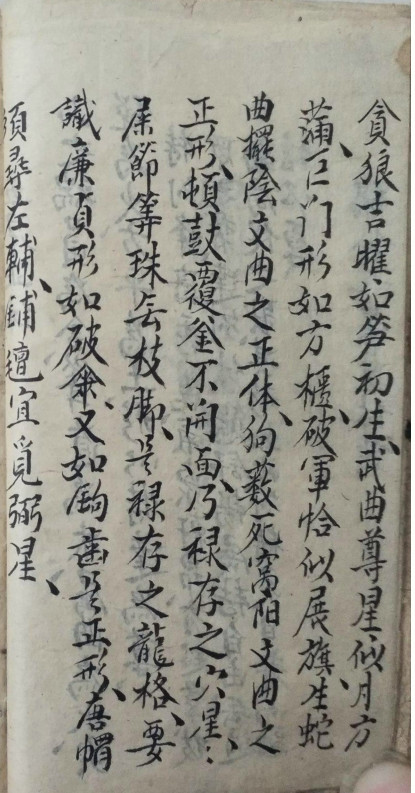 貪狼吉曜如笋初生、武曲尊星似月方
蒲、巨门形如方櫃、破軍恰似展旗、生蛇
曲擺陰文曲之正体、狗薮死窩阳文曲之
正形、頓鼓覆釜不開面、乃禄存之穴星、
屎節筭珠无枝脚、是禄存之龍格、要
識廉貞形如破傘、又如鋸齒是正形、唐帽
須尋左輔、鋪氊宜覓弼星、